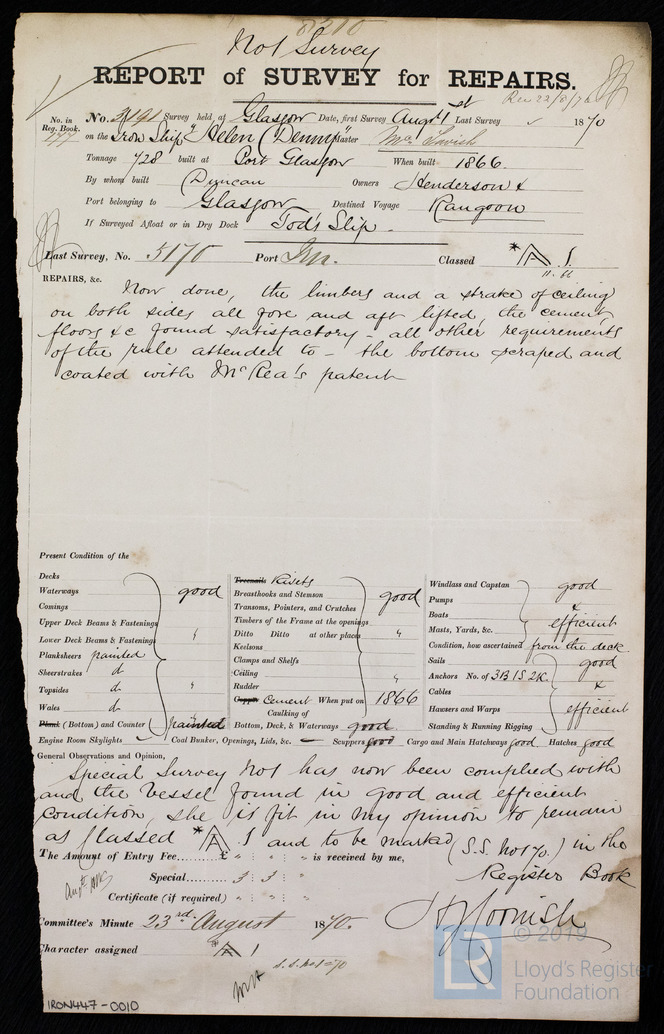 8210
No1 Survey
REPORT of SURVEY for REPAIRS.
Rec 22/8/70
No. in Reg. Book.
No. 9191 Survey held at Glasgow Date, first Survey Augst 1st Last Survey 1870
on the Iron Ship "Helen Denny" Master
Tonnage 728 built at Port Glasgow When built 1866.
By whom built Duncan Owners Henderson &
Port belonging to Glasgow Destined Voyage Rangoon
If Surveyed Afloat or in Dry Dock Tod's Slip.
Last Survey, No. 5170 Port Classed *A 1
11.66
REPAIRS, &c.
Now done, the limbers and a strake of ceiling
on both sides all fore and aft lifted, the cement
floors &c found satisfactory - all other requirements
of the rule attended to - the bottom scraped and
coated with McRea's patent
Present Condition of the
Decks
Waterways good
Comings
Upper Deck Beams & Fastenings "
Lower Deck Beams & Fastenings
Planksheers painted
Sheerstrakes do
Topsides do "
Wales do
Plank (Bottom) and Counter painted
Engine Room Skylights
Treenails Rivets
Breasthooks and Stemson good
Transoms, Pointers, and Crutches
Timbers of the Frame at the openings
Ditto Ditto at other places "
Keelsons
Clamps and Shelfs
Ceiling "
Rudder
Copper Cement When put on 1866
Caulking of
Bottom, Deck, & Waterways good
Windlass and Capstan good
Pumps
Boats &
Masts, Yards, &c. efficient
Condition, how ascertained from the deck.
Sails good
Anchors No. of 3B 1S 2K.
Cables &
Hawsers and Warps efficient
Standing & Running Rigging
Coal Bunker, Openings, Lids, &c. — Scuppers good Cargo and Main Hatchways good Hatches good
General Observations and Opinion,
Special Survey No1 has now been complied with
and the Vessel found in good and efficient
condition, she is fit in my opinion to remain
as Classed *A 1 and to be marked (S.S. No1 70.) in the
Register Book
The Amount of Entry Fee....£ " : " : " is received by me,
Special........ 3 : 3 : "
Certificate (if required) " : " : "
Committee's Minute 23rd August 1870.
Character assigned *A 1
S.S. No1=70
IRON447-0010
© 2019
LR
Lloyd's Register
Foundation